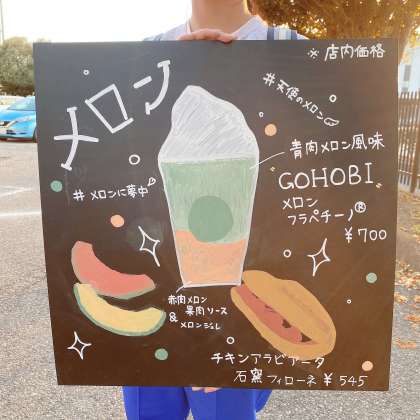 ※店内価格
メロン
#天使のメロン♡
青肉メロン風味
"GOHOBI"
メロン
フラペチーノ®
¥700
#メロンに夢中♡
赤肉メロン
果肉ソース
&
メロンジュレ
チキンアラビアータ
石窯フィローネ ¥545